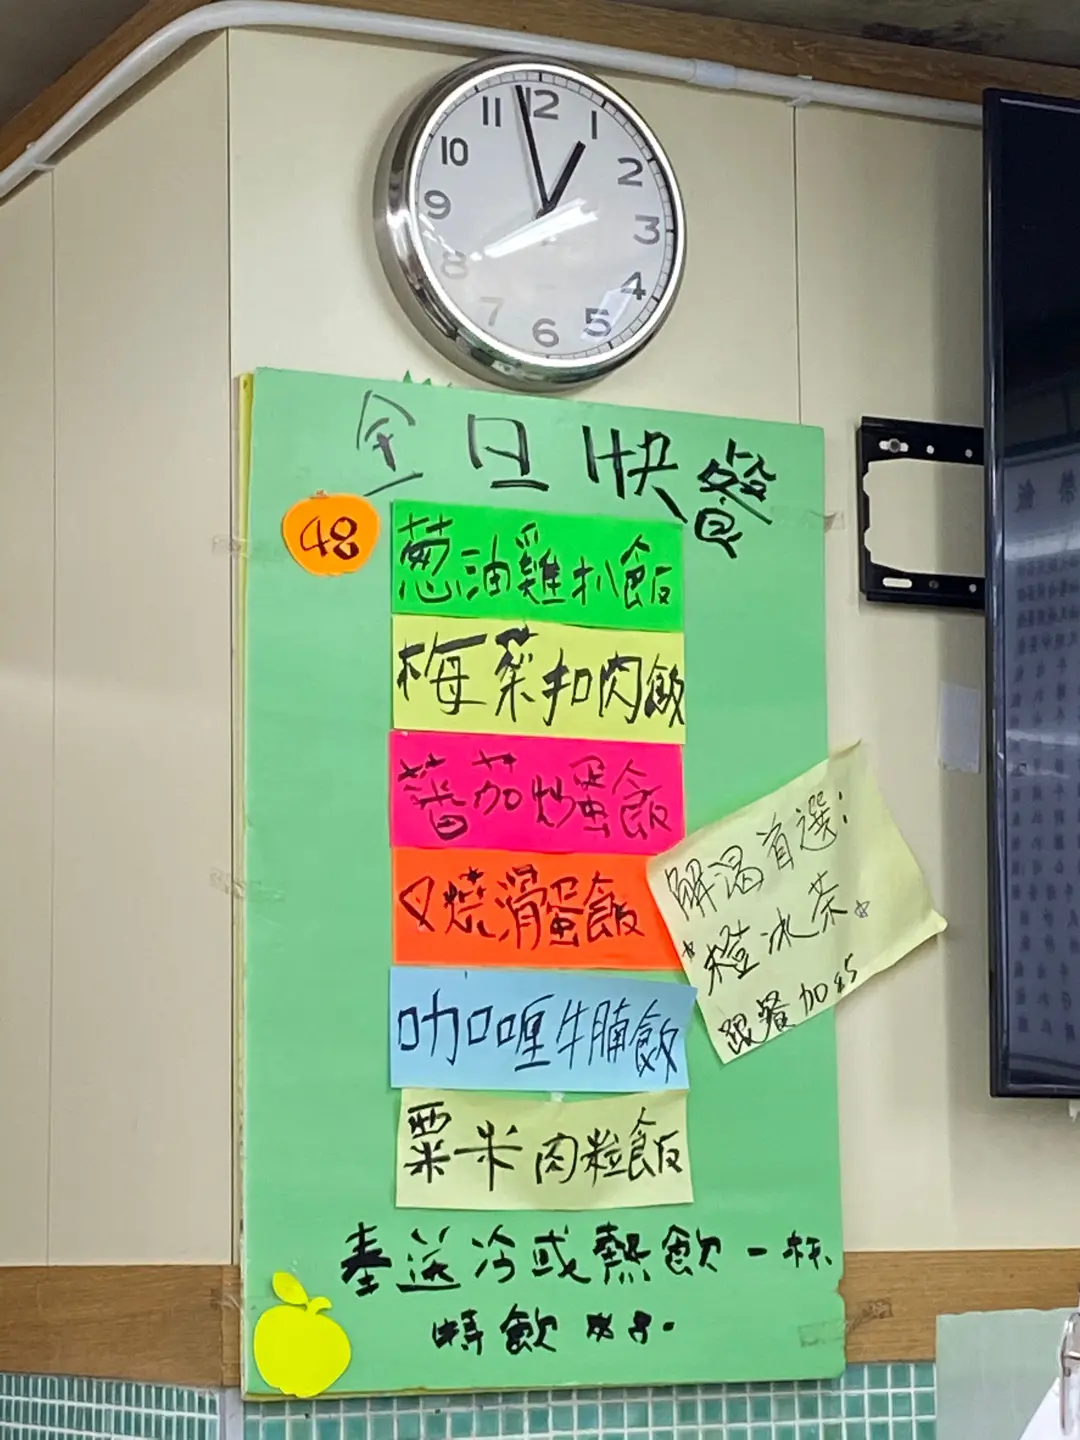 11 12 1
10 2
9 3
8 4
7 6 5
全日快餐
48
葱油雞扒飯
梅菜扣肉飯
蕃茄炒蛋飯
叉燒滑蛋飯
咖哩牛腩飯
粟米肉粒飯
解渴首選:
*橙冰茶。☆
跟餐加$5
奉送冷或熱飲一杯
特飲